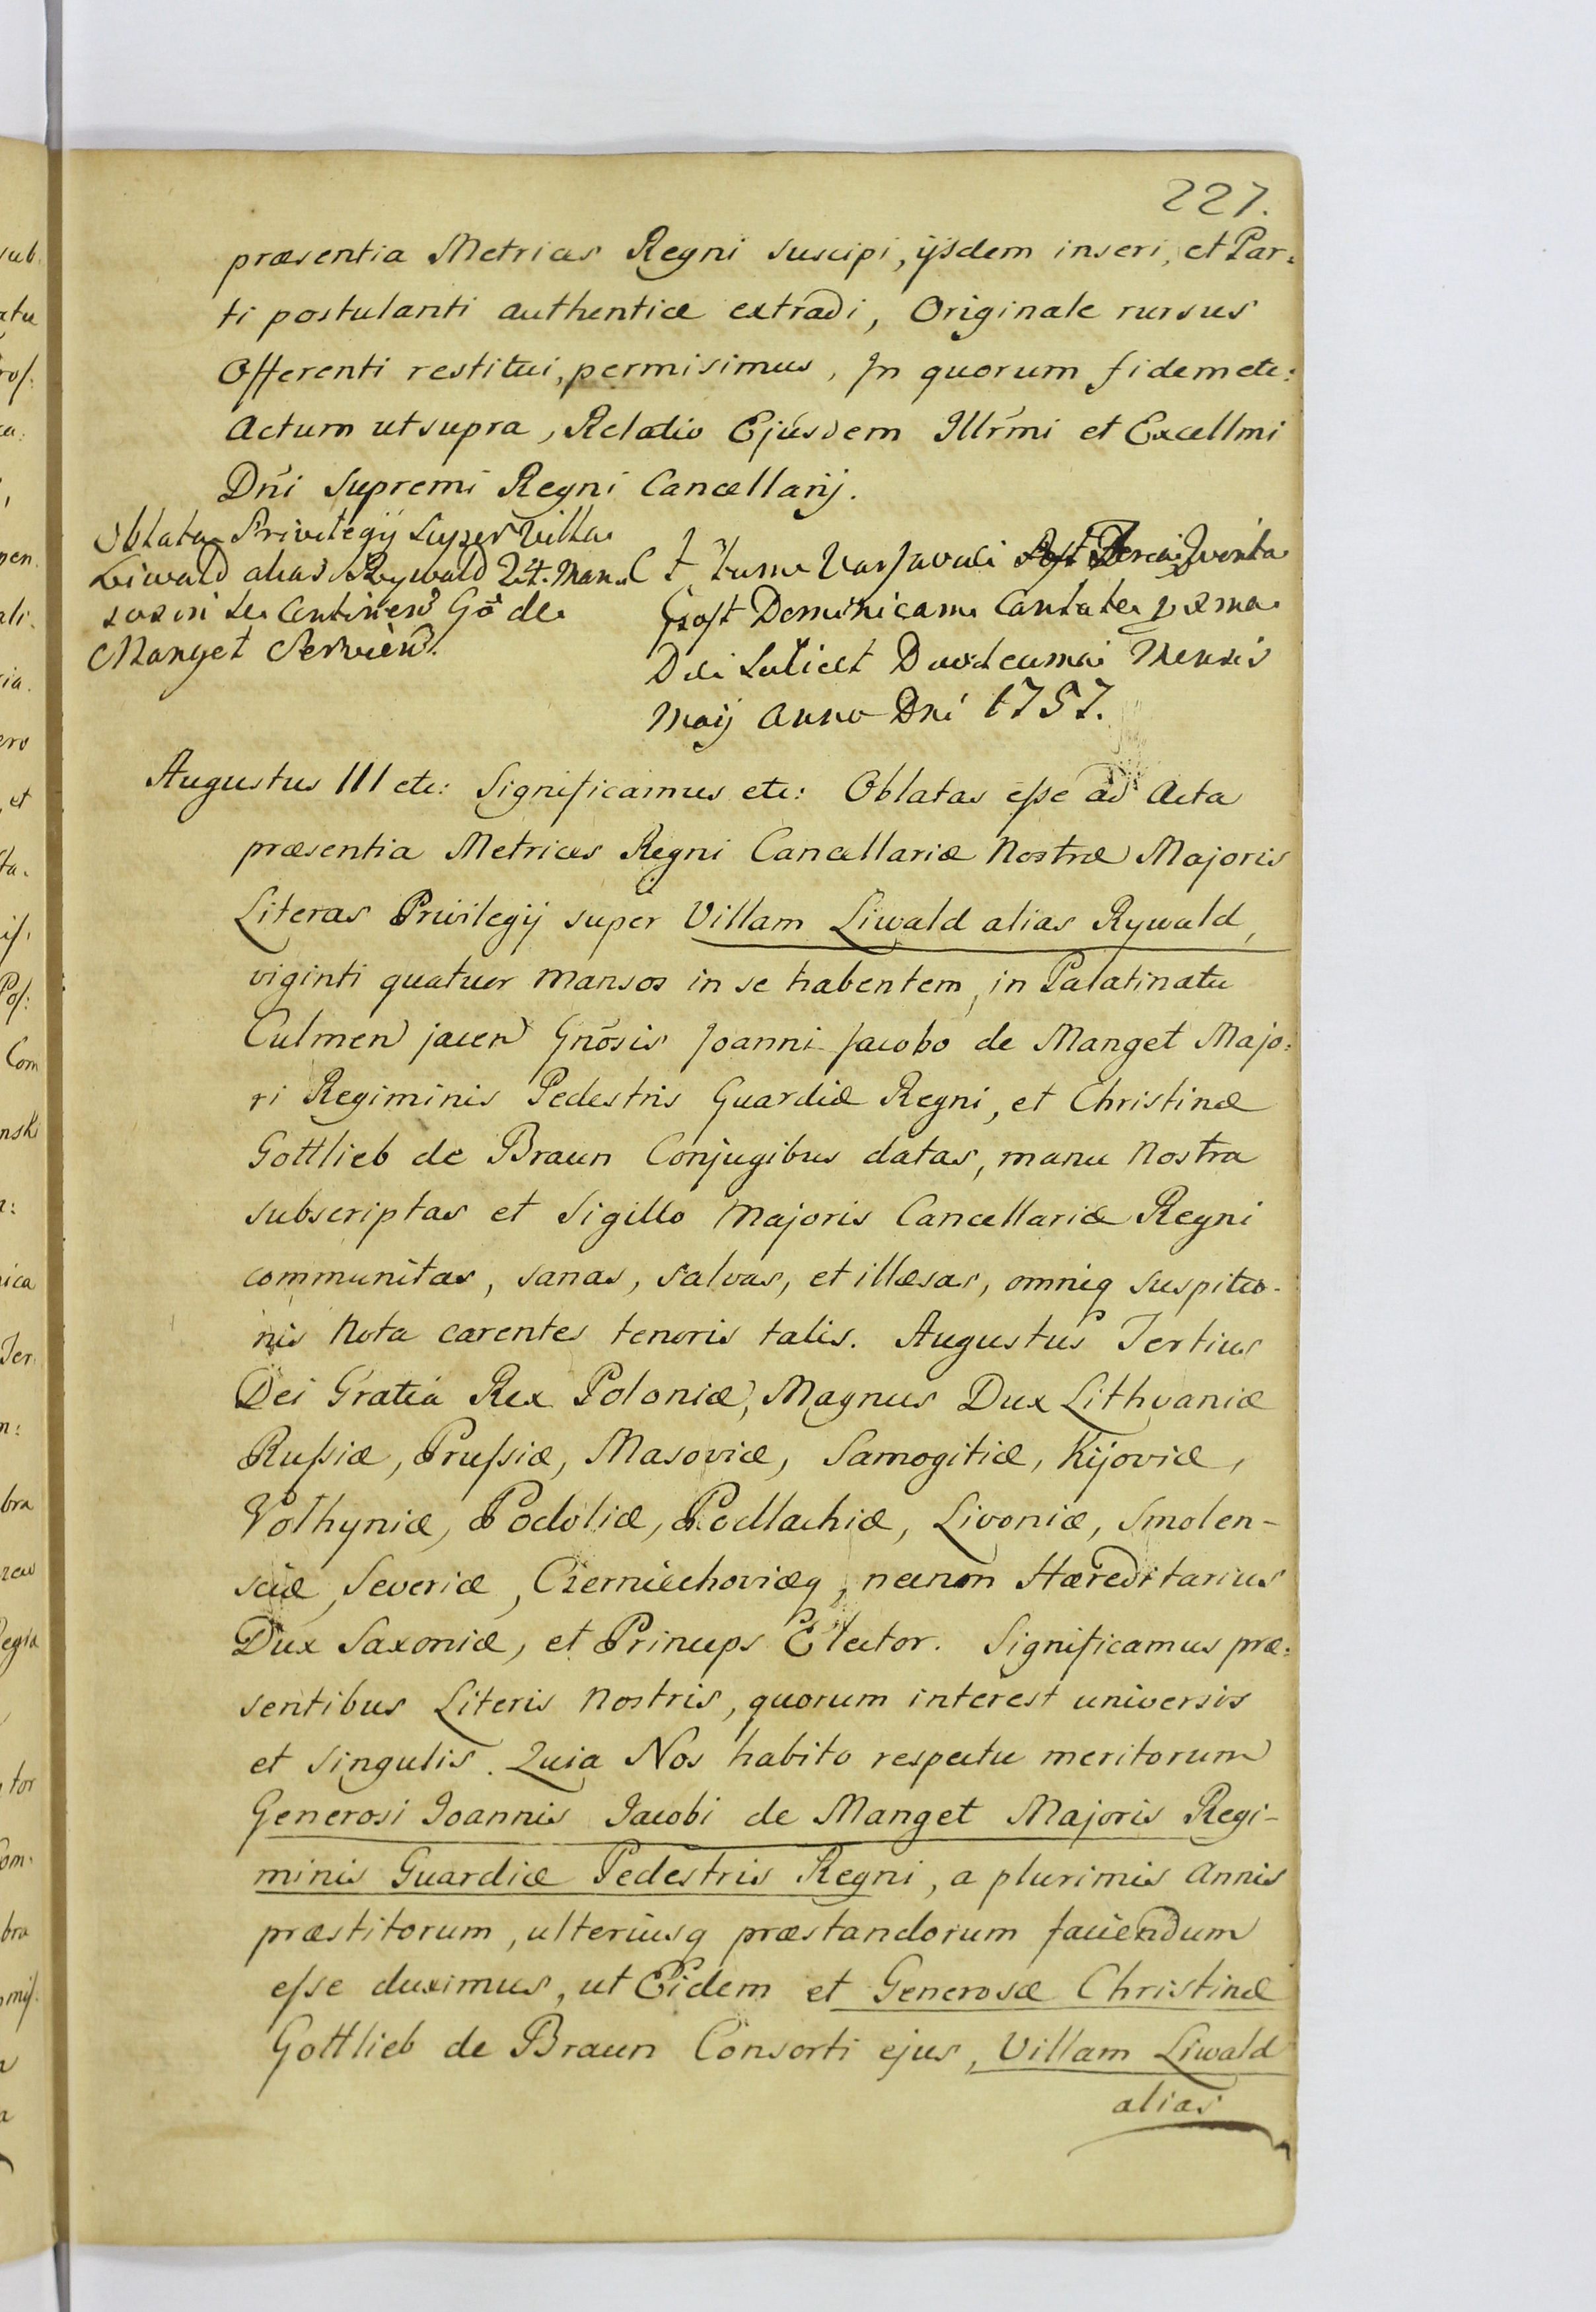 227.
præsentia Metrices Regni suscipi, ijsdem inseri, et Par:
ti postulanti authentice extradi, Originale rursus
Offerenti restitui, permisimus, In quorum fidem etc:
Actum ut supra, Relatio Ejusdem Illrmi et Excellmi
Dni Supremi Regni Cancellarij.
Oblata Privilegij Super Villa
Liwald alias Rywald 24. Man
sos in se Continen Go de
Manget Servien.
Varsaviæ
post Dominicam Cantate pxma
Die Scilicet Duodecima Mensis
Maij Anno Dni 1757.
Augustus III etc: Significamus etc: Oblatas esse ad Acta
præsentia Metrices Regni Cancellariæ Nostræ Majoris
Literas Privilegij super Villam Liwald alias Rywald,
viginti quatuor mansos in se habentem, in Palatinatu
Culmen jacen Gnosis Joanni Jacobo de Manget Majo:
ri Regiminis Pedestris Guardiæ Regni, et Christinæ
Gottlieb de Braun Conjugibus datas, manu Nostra
subscriptas et Sigillo Majoris Cancellariæ Regni
communitas, sanas, salvas, et illæsas, omniq suspitio-
nis Nota carentes tenoris talis. Augustus Tertius
Dei Gratia Rex Poloniæ, Magnus Dux Lithvaniæ
Russiæ, Prussiæ, Masoviæ, Samogitiæ, Kijoviæ,
Volhyniæ, Podoliæ, Podlachiæ, Livoniæ, Smolen-
sciæ, Severiæ, Czerniechoviæq, necnon Hæreditarius
Dux Saxoniæ, et Princeps Elector. Significamus præ:
sentibus Literis Nostris, quorum interest universis
et singulis. Quia Nos habito respectu meritorum
Generosi Ioannis Iacobi de Manget Majoris Regi-
minis Guardiæ Pedestris Regni, a plurimis Annis
præstitorum, ulteriusq præstandorum faciendum
esse duximus, ut Eidem et Generosæ Christinæ
Gottlieb de Braun Consorti ejus, Villam Liwald
alias